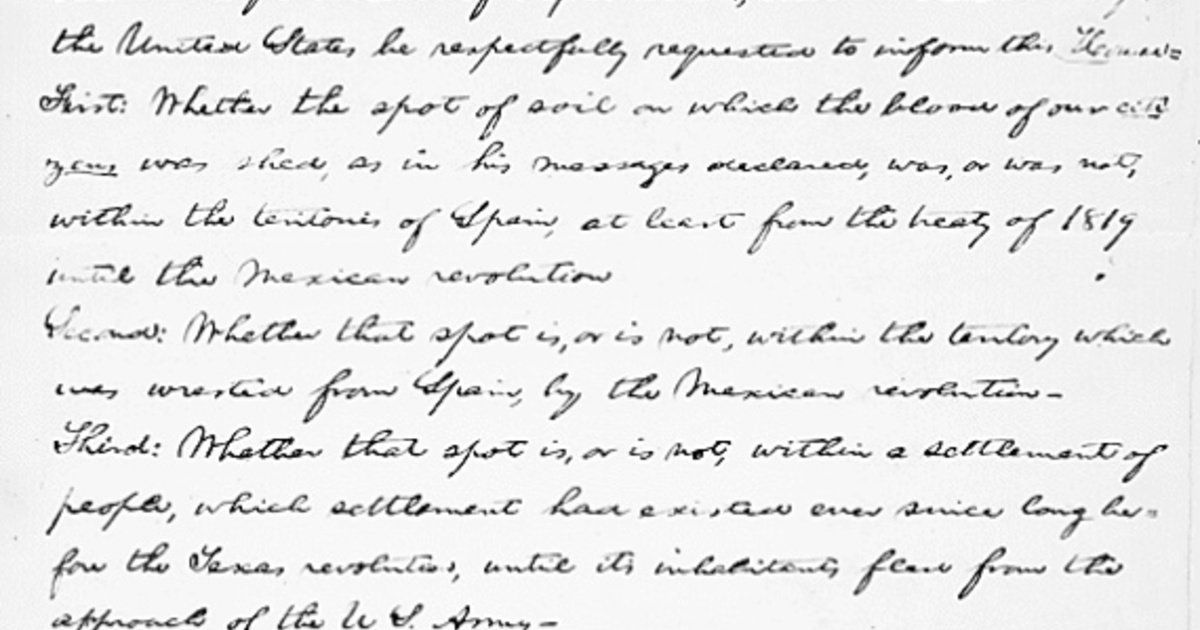 the United States be respectfully requested to inform this House =
First: Whether the spot of soil on which the blood of our citi
zens was shed, as in his messages declared, was, or was not,
within the teritories of Spain, at least from the treaty of 1819
until the Mexican revolution
Second: Whether that spot is, or is not, within the teritory which
was wrested from Spain, by the Mexican revolution –
Third: Whether that spot is, or is not, within a settlement of
people, which settlement had existed ever since long be=
fore the Texas revolution, until its inhabitants fled from the
approach of the U S. Army –